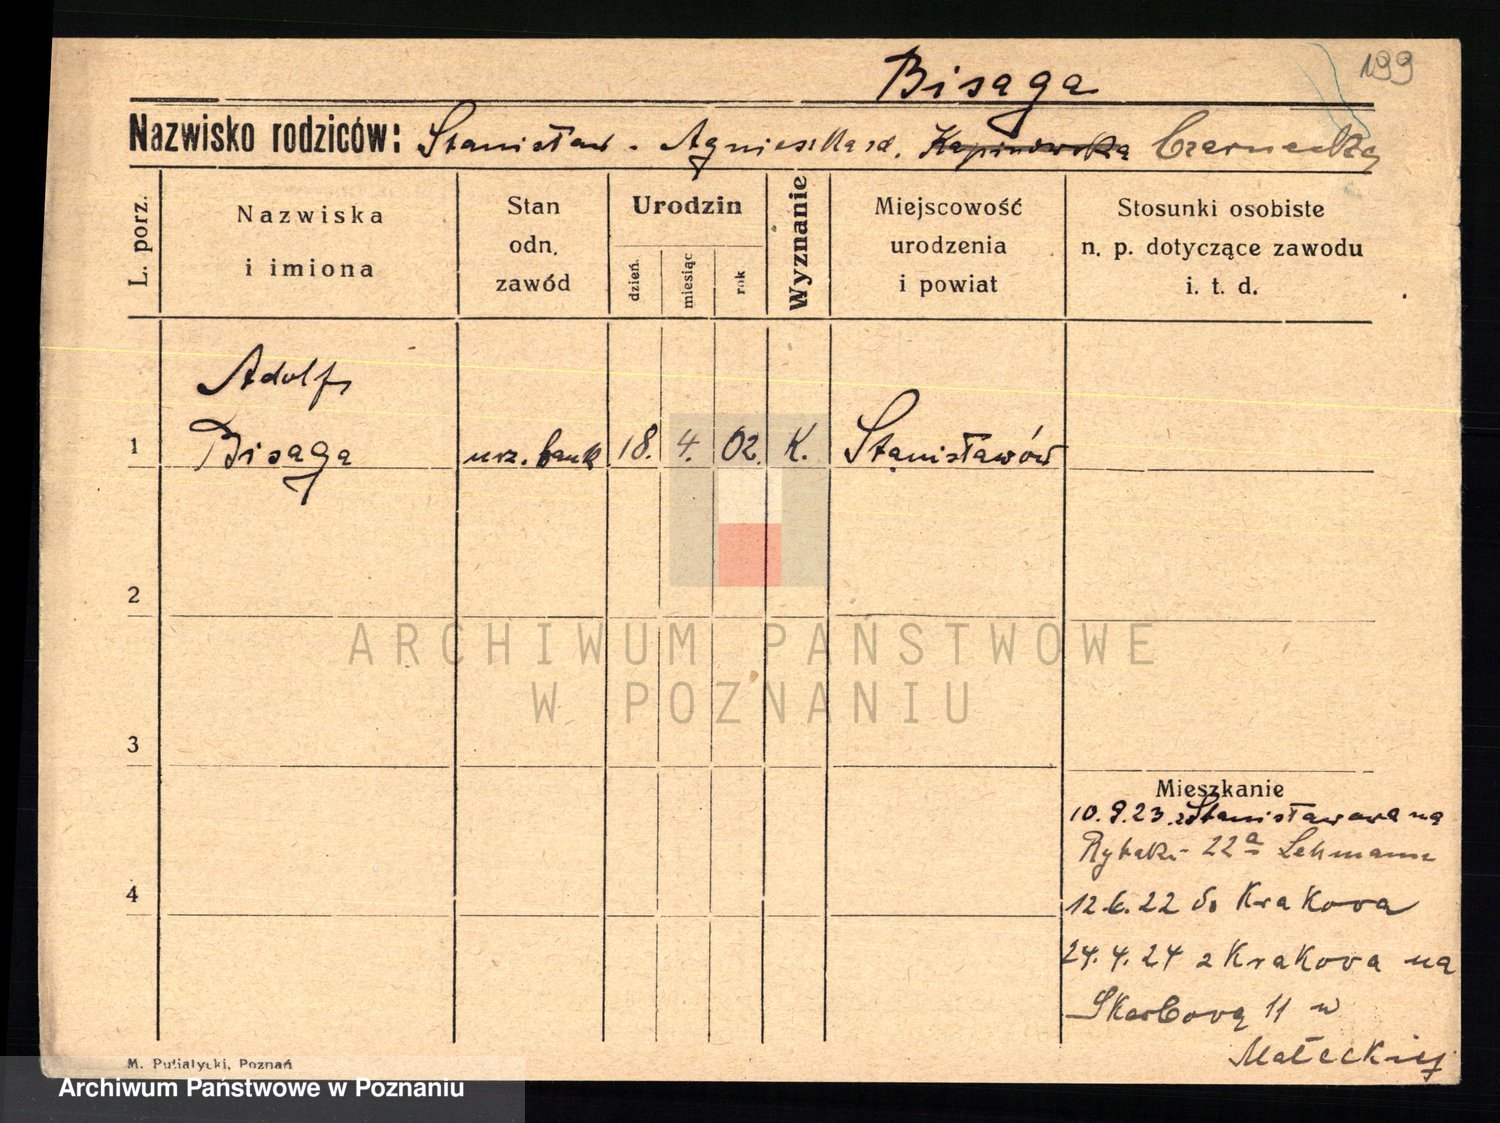 199
Bisaga
Nazwisko rodziców: Stanisław - Agnieszka zd. Kapinowska Czarnecka
L. porz.
Nazwiska
i imiona
Stan
odn.
zawód
Urodzin
dzień.
miesiąc
rok
Wyznanie
Miejscowość
urodzenia
i powiat
Stosunki osobiste
n. p. dotyczące zawodu
i. t. d.
Adolf
1 Bisaga urz. bank 18. 4. 02. K. Stanisławów
2
ARCHIWUM PAŃSTWOWE
W POZNANIU
3
Mieszkanie
10.9.23. z Stanisławowa na
Rybaki 22a Lehmann
4
12.6.22 do Krakowa
24.4.24 z Krakowa na
Skarbową 11 w
Małeckiej
M. Putiatycki, Poznań
Archiwum Państwowe w Poznaniu